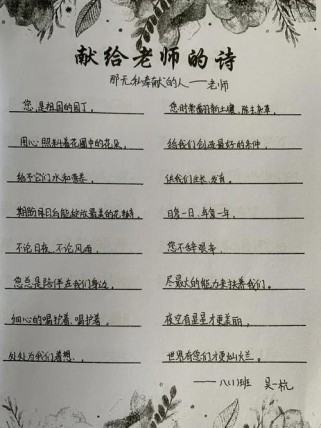 献给老师的诗
那无私奉献的人——老师
您,是祖国的园丁,
用心照料着花圃中的花朵,
给予它们水和营养,
期盼来日后能绽放最美的花瓣,
不论日夜,不论风雨,
您总是陪伴在我们身边,
细心的呵护着、呵护着,
处处为我们着想,
您时常翻新土壤,除去杂草,
给我们创造最好的条件,
供我们生长、发育。
日复一日,年复一年,
您不辞艰辛,
尽最大的能力来扶养我们。
夜空有星星才更美丽,
世界有您们才更灿烂。
——八(1)班 吴一杭